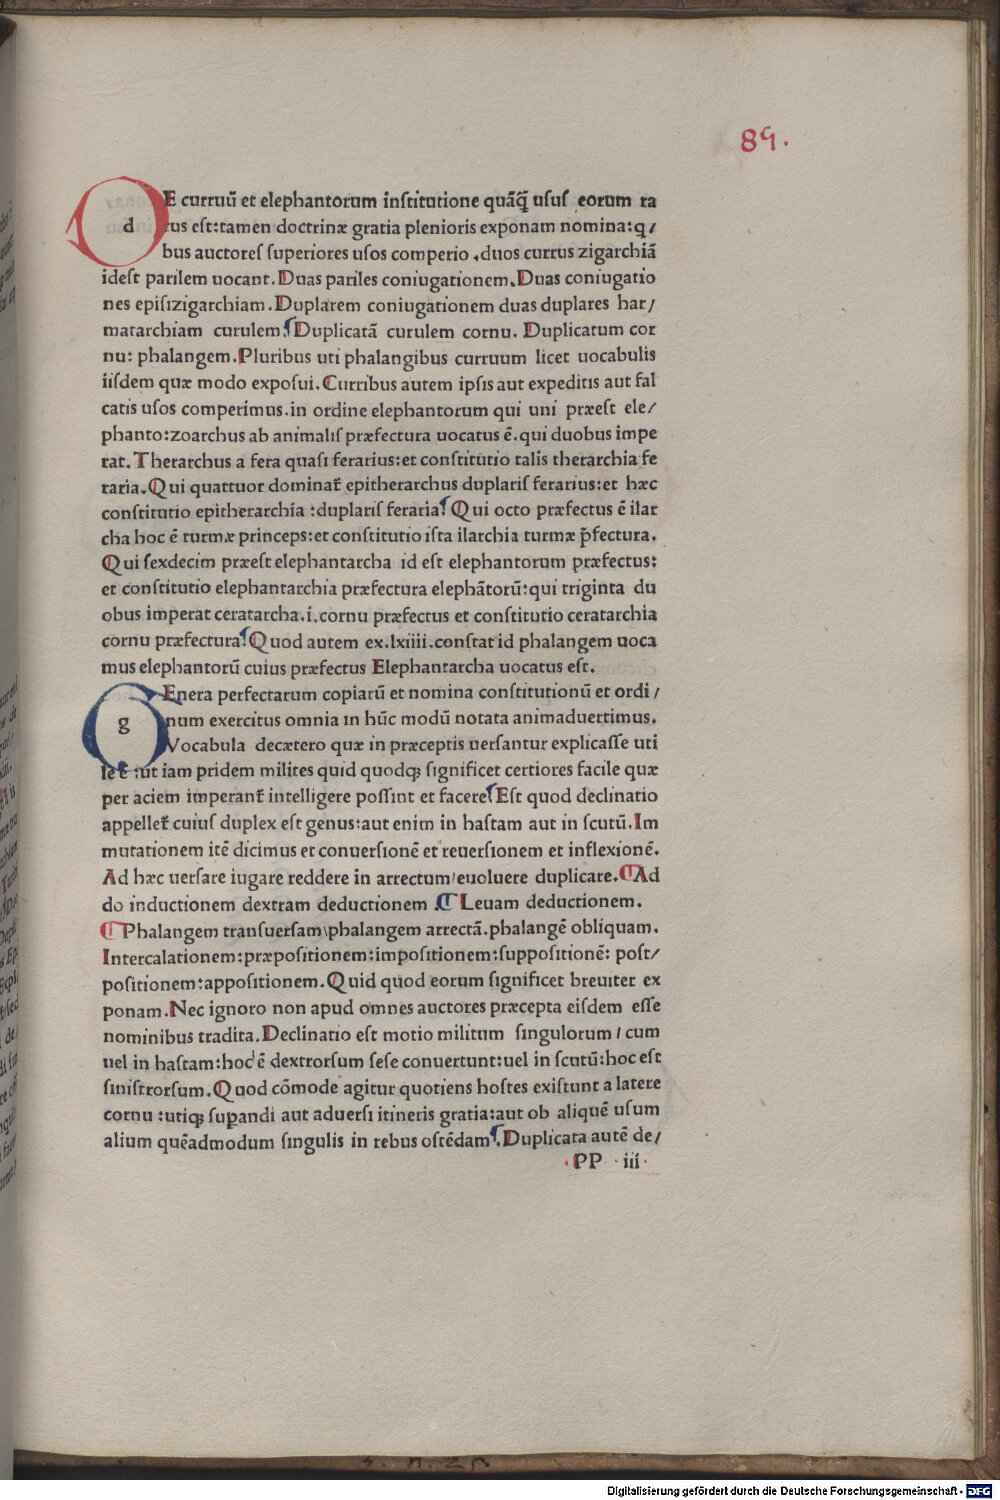 89.
DE curruū et elephantorum inſtitutione quāq̄ uſuſ eorum ra
d rus eſt:tamen doctrinæ gratia plenioris exponam nomina:q/
bus auctoreſ ſuperiores uſos comperio .duos currus zigarchiā
ideſt parilem uocant.Duas pariles coniugationem.Duas coniugatio
nes epiſizigarchiam.Duplarem coniugationem duas duplares har/
matarchiam curulem.Duplicatā curulem cornu. Duplicatum cor
nu: phalangem.Pluribus uti phalangibus curruum licet uocabulis
iiſdem quæ modo expoſui.Curribus autem ipſis aut expeditis aut fal
catis uſos comperimus.in ordine elephantorum qui uni præeſt ele/
phanto:zoarchus ab animaliſ præfectura uocatus ē.qui duobus impe
rat.Therarchus a fera quaſi ferarius:et conſtitutio talis therarchia fe
raria.Qui quattuor dominat̄ epitherarchus duplariſ ferarius:et hæc
conſtitutio epitherarchia :duplariſ feraria.Qui octo præfectus ē ilar
cha hoc ē turmæ princeps:et conſtitutio iſta ilarchia turmæ p̄fectura.
Qui ſexdecim præeſt elephantarcha id eſt elephantorum præfectus:
et conſtitutio elephantarchia præfectura elephātorū:qui triginta du
obus imperat ceratarcha.i.cornu præfectus et conſtitutio ceratarchia
cornu præfectura.Quod autem ex.lxiiii.conſtat id phalangem uoca
mus elephantorū cuius præfectus Elephantarcha uocatus eſt.
GEnera perfectarum copiarū et nomina conſtitutionū et ordi /
g num exercitus omnia in hūc modū notata animaduertimus.
Vocabula decætero quæ in præceptis uerſantur explicaſſe uti
le ē :ut iam pridem milites quid quodq; ſignificet certiores facile quæ
per aciem imperant̄ intelligere poſſint et facere.Eſt quod declinatio
appellet̄ cuius duplex eſt genus:aut enim in haſtam aut in ſcutū.Im
mutationem itē dicimus et conuerſionē et reuerſionem et inflexionē.
Ad hæc uerſare iugare reddere in arrectum/euoluere duplicare.¶Ad
do inductionem dextram deductionem .¶Leuam deductionem.
¶Phalangem tranſuerſam\phalangem arrectā.phalangē obliquam.
Intercalationem:præpoſitionem:impoſitionem:ſuppoſitionē: poſt/
poſitionem:appoſitionem.Quid quod eorum ſignificet breuiter ex
ponam.Nec ignoro non apud omnes auctores præcepta eiſdem eſſe
nominibus tradita.Declinatio eſt motio militum ſingulorum / cum
uel in haſtam:hoc ē dextrorſum ſeſe conuertunt:uel in ſcutū:hoc eſt
ſiniſtrorſum.Quod cōmode agitur quotiens hoſtes exiſtunt a latere
cornu :utiq; ſuꝑandi aut aduerſi itineris gratia:aut ob aliquē uſum
alium quēadmodum ſingulis in rebus oſtēdam.Duplicata autē de/
.PP iii.
Digitalisierung gefördert durch die Deutsche Forschungsgemeinschaft - DFG